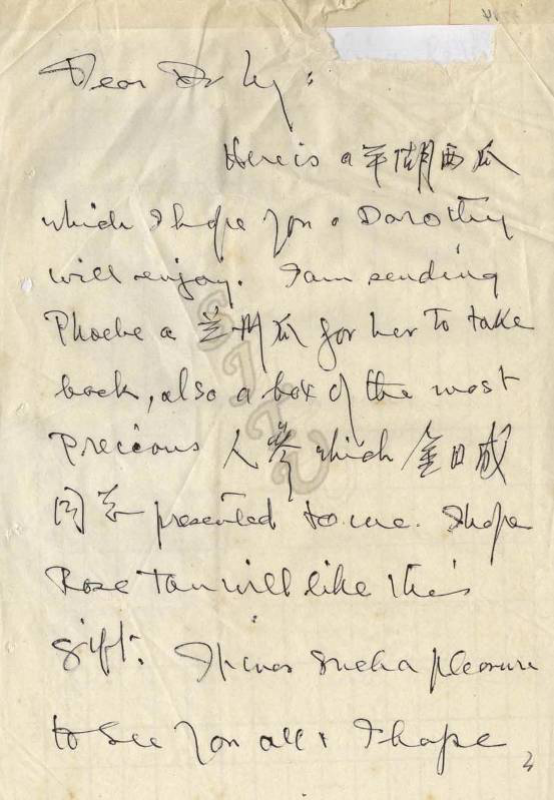 Dear Dr Ly:
Here is a 平湖西瓜
which I hope you & Dorothy
will enjoy. I am sending
Phoebe a 兰州瓜 for her to take
back, also a box of the most
precious 人参 which 金日成
同志 presented to me. I hope
Rose Tan will like this
gift. It was such a pleasure
to see you all & I hope